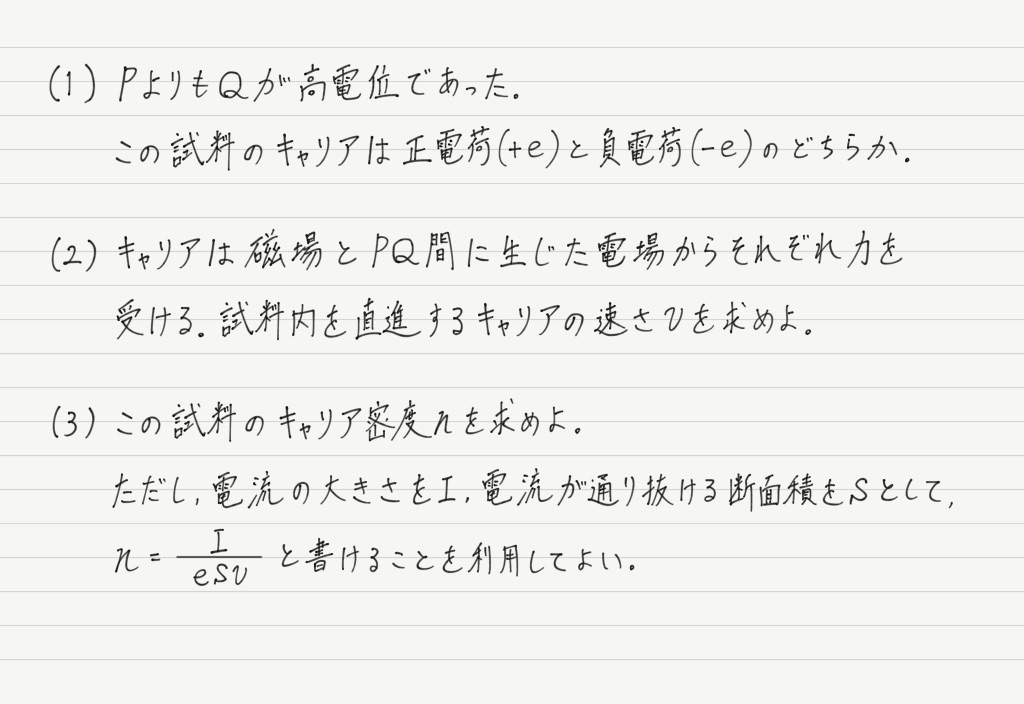 (1) PよりもQが高電位であった.
この試料のキャリアは正電荷(+e)と負電荷(-e)のどちらか.
(2) キャリアは磁場とPQ間に生じた電場からそれぞれ力を
受ける.試料内を直進するキャリアの速さvを求めよ.
(3) この試料のキャリア密度nを求めよ.
ただし,電流の大きさをI,電流が通り抜ける断面積をSとして,
n = I/eSv と書けることを利用してよい.